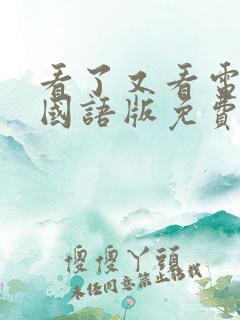 看了又看電
國語版免費
傻傻丫頭
未經同意禁止轉載